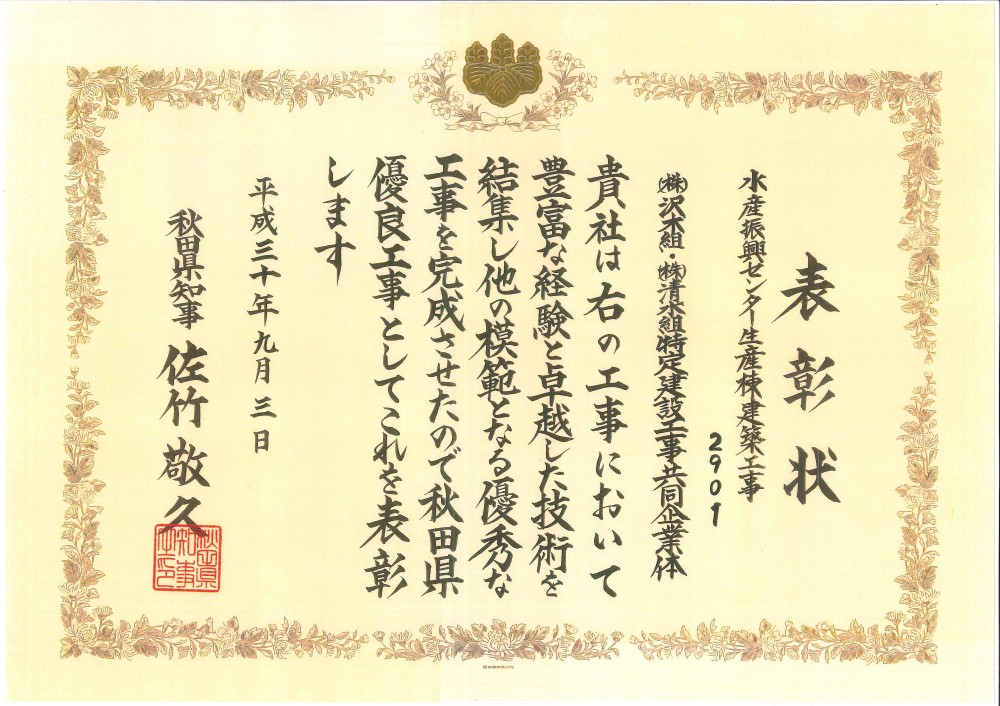 表彰状
水産振興センター生産棟建築工事
2901
㈱沢木組・㈱清水組特定建設工事共同企業体
貴社は右の工事において
豊富な経験と卓越した技術を
結集し他の模範となる優秀な
工事を完成させたので秋田県
優良工事としてこれを表彰
します
平成三十年九月三日
秋田県知事 佐竹敬久
秋田県知事之印